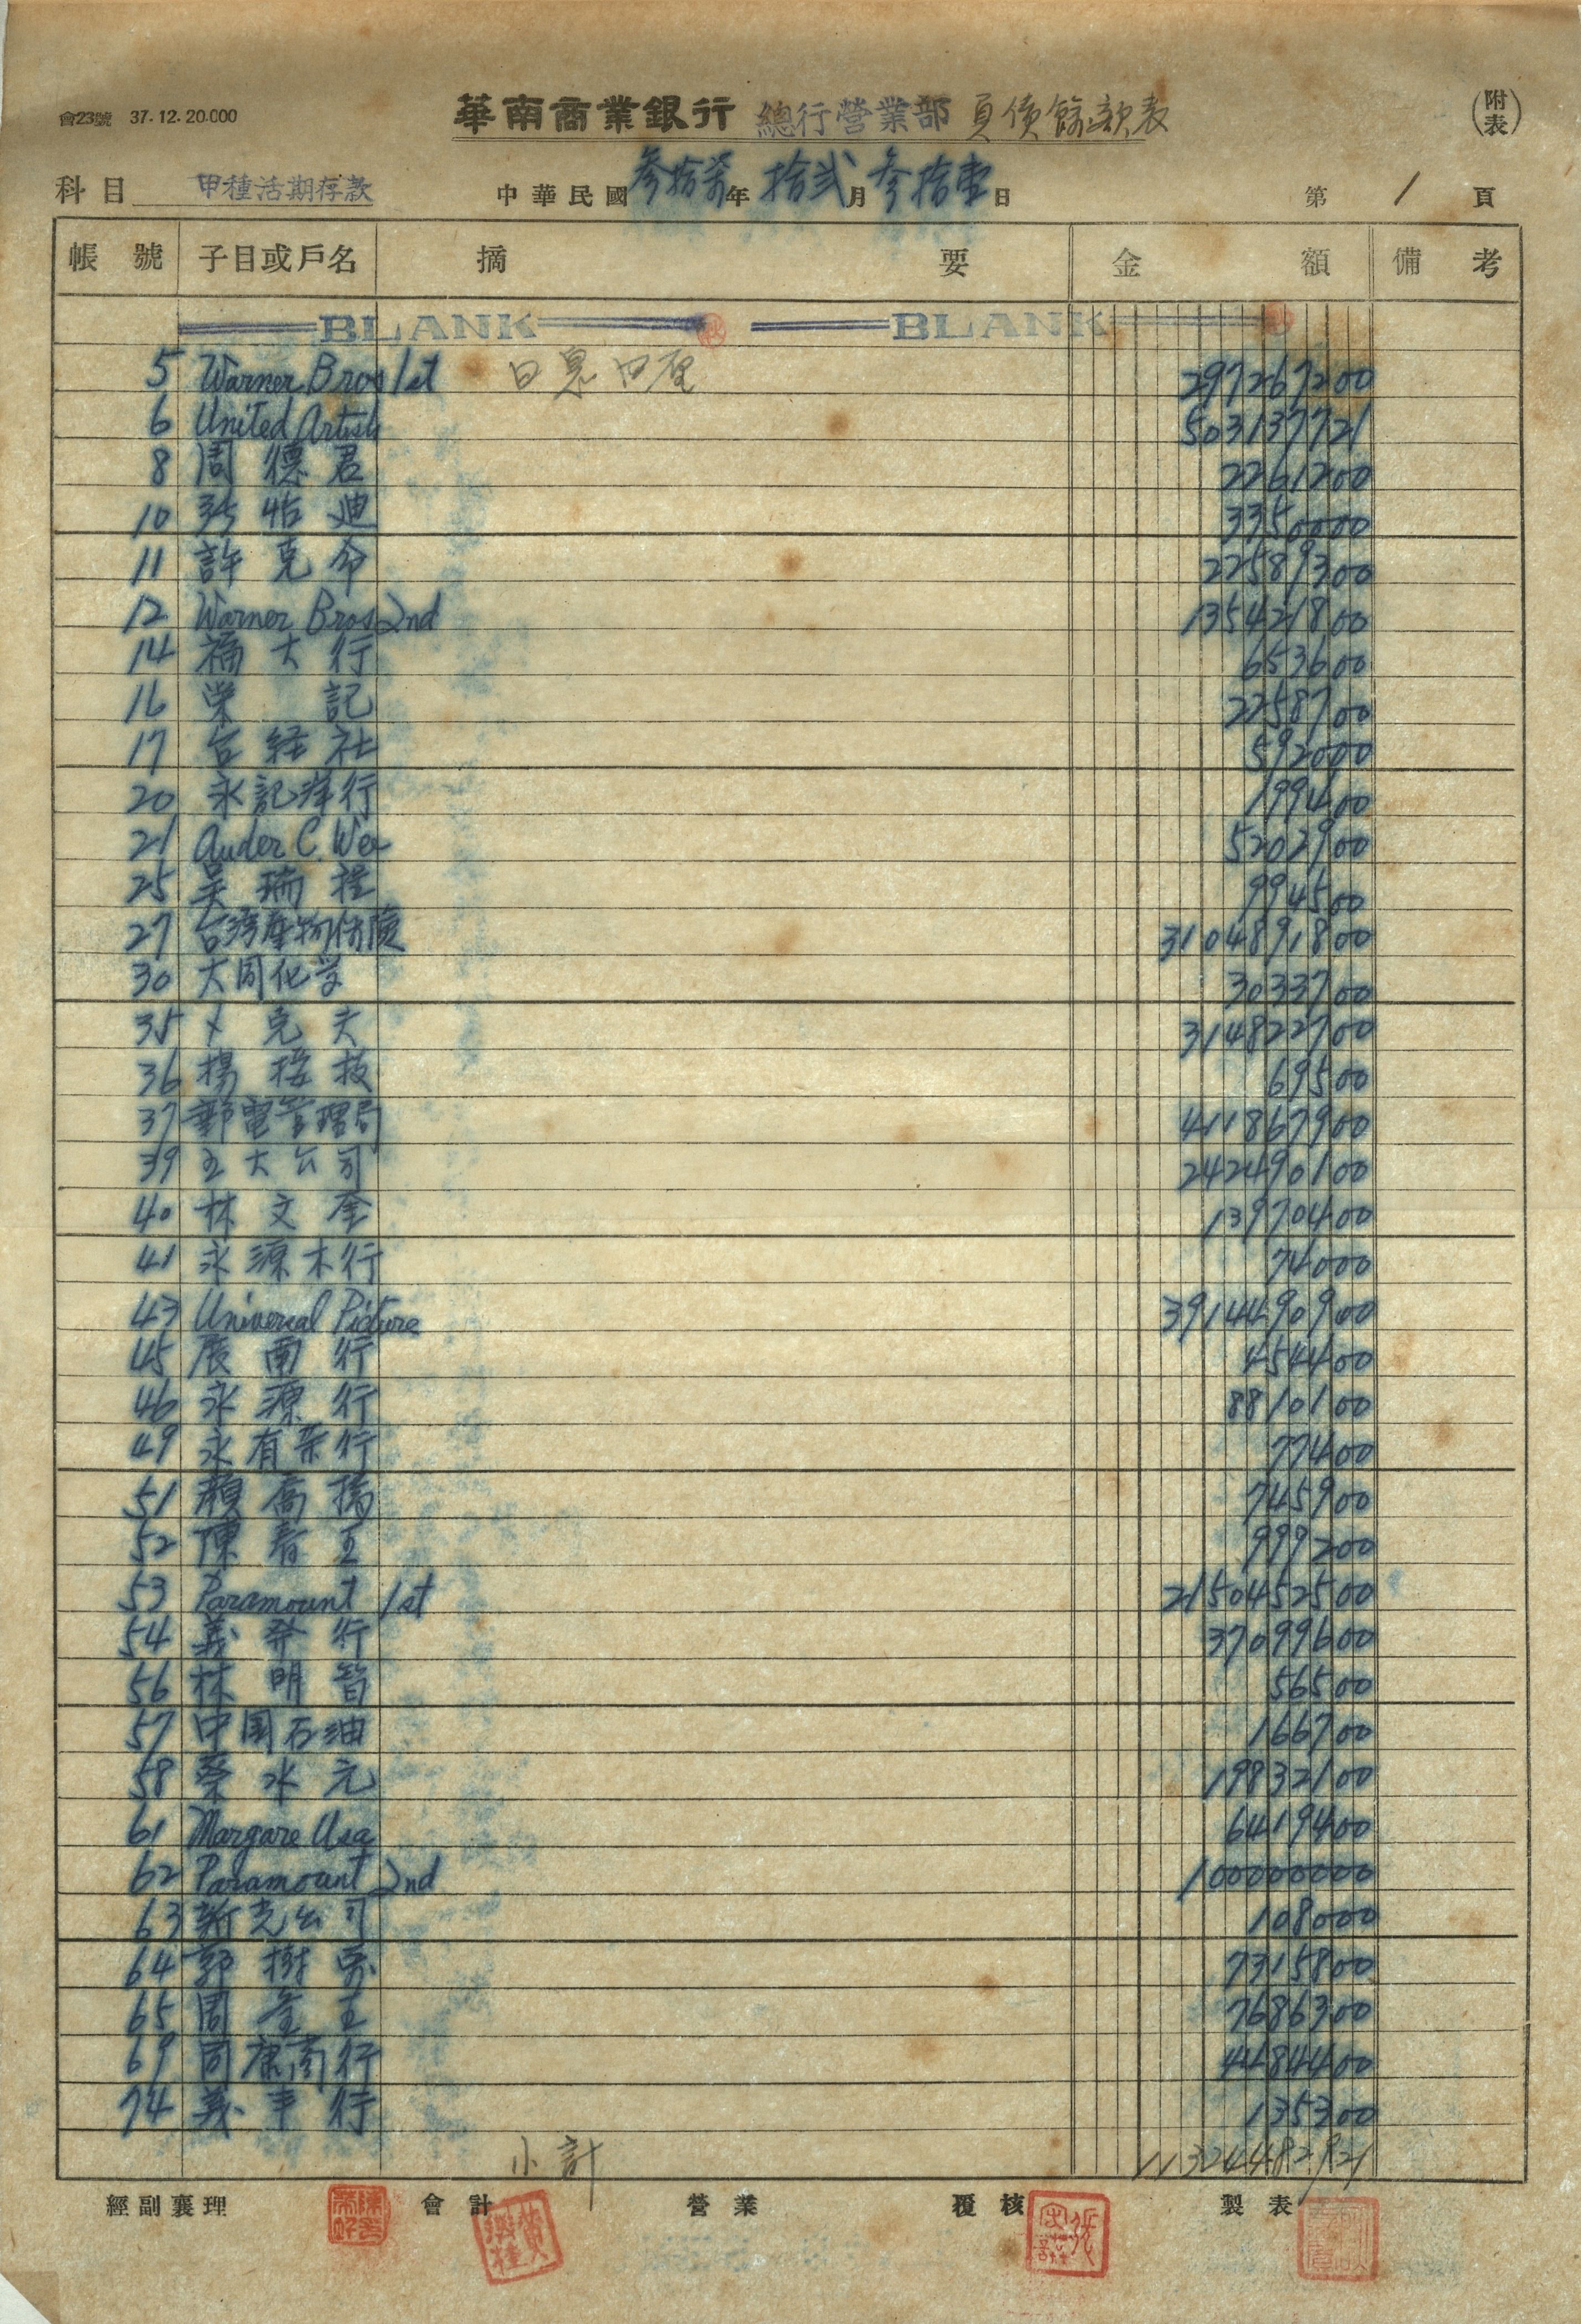 會23號 37.12.20.000
華南商業銀行 總行營業部 負債餘額表
(附表)
科目 甲種活期存款 中華民國 參拾柒年 拾弍月 參拾壹日 第 1 頁
帳號 子目或戶名 摘要 金額 備考
BLANK BLANK
5 Warner Bros 1st 日息四厘 297267200
6 United Artists 503137721
8 周德君 2261200
10 怡迪 3350000
11 許克命 22589300
12 Warner Bros 2nd 135421800
14 福大行 653600
16 榮記 2258700
17 台経社 592000
20 永記洋行 199400
21 Auder C. Wee 5202900
25 吴瑞程 994500
27 台湾産物保險 3104891800
30 大同化学 3033700
35 克夫 314822700
36 楊接枝 69500
37 郵電管理局 411867900
39 五大公司 242490100
40 林文奎 13970400
41 永源木行 74000
43 Universal Picture 3914490900
45 展南行 454400
46 永源行 8810100
49 永有茶行 77400
51 顏喬 745900
52 陳春玉 999200
53 Paramount 1st 2150452500
54 義発行 37099600
56 林明智 56500
57 中国石油 166700
58 蔡水元 19832100
61 Margare Usa 6419400
62 Paramount 2nd 100000000
63 新光公司 108000
64 郭 7315800
65 周金玉 7686300
69 同康商行 4484400
74 義丰行 135300
小計 11324482921
經副襄理 會計 營業 覆核 製表